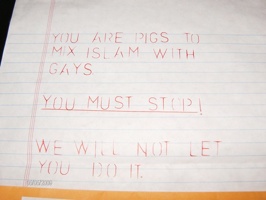 YOU ARE PIGS TO
MIX ISLAM WITH
GAYS
YOU MUST STOP!
WE WILL NOT LET
YOU DO IT.